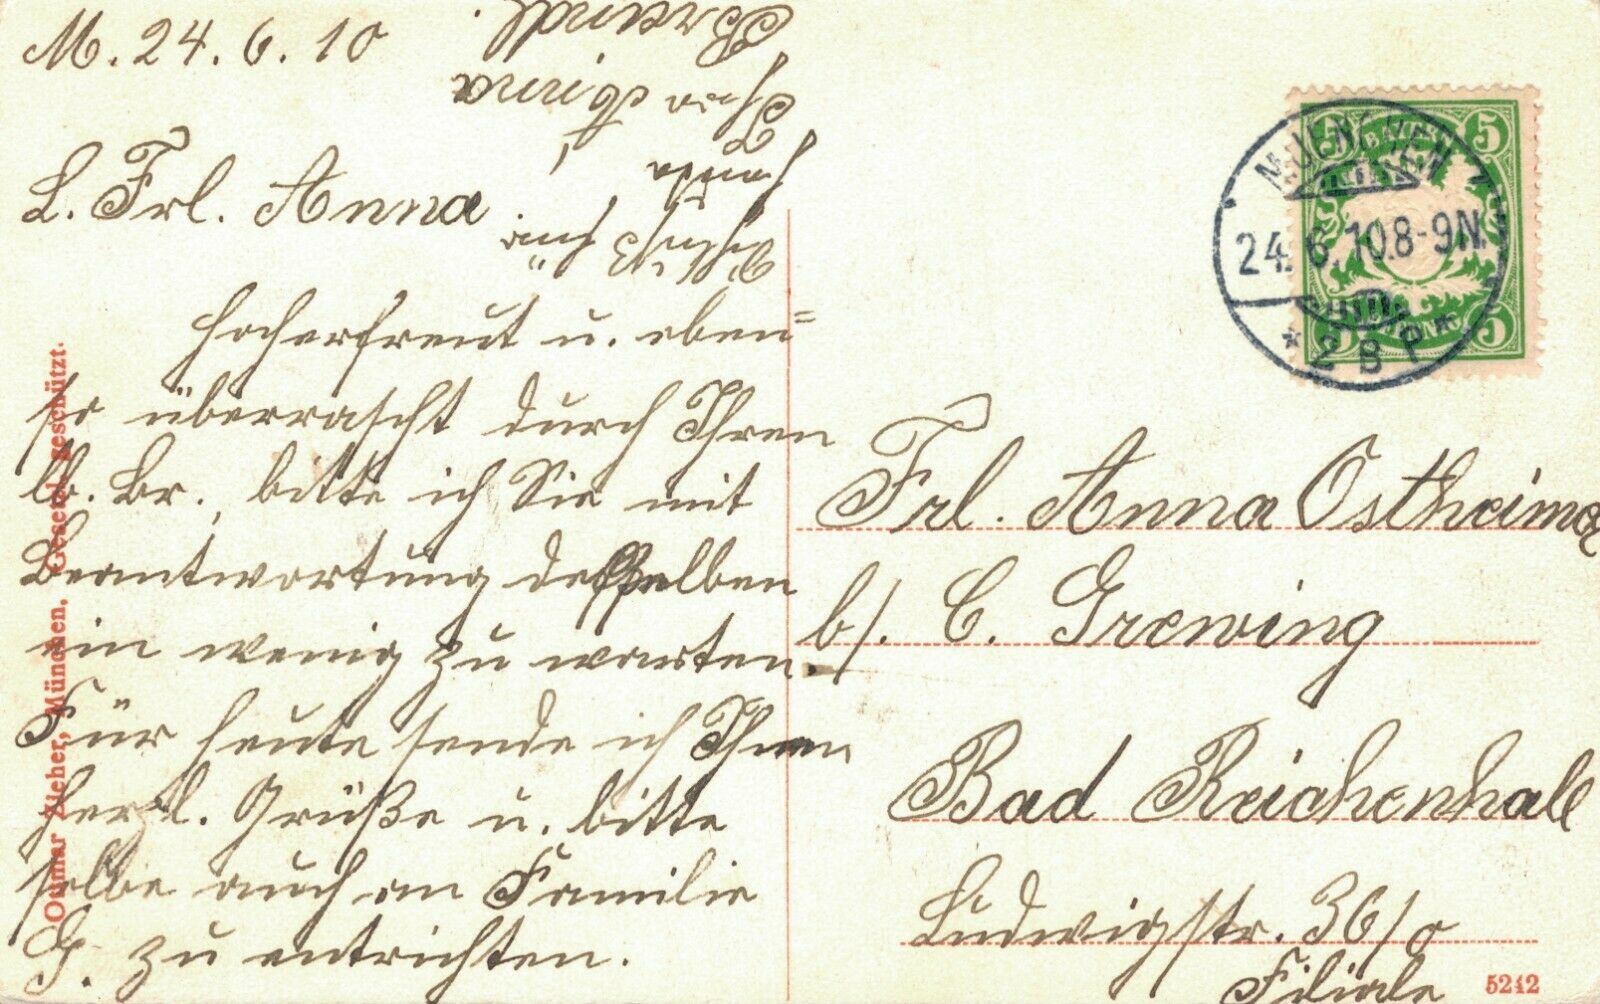 M. 24. 6. 10
L. Frl. Anna.
Hocherfreut u. eben=
so überrascht durch Ihren
lb. Br., bitte ich Sie mit
Beantwortung desselben
ein wenig zu warten.
Für heute sende ich Ihnen
herzl. Grüße u. bitte
selbe auch an Familie
G. zu entrichten.
für
heute
Ihre
Frl. Anna Ostheimer
b/. C. Grewing
Bad Reichenhall
Ludwigstr. 36/0
Filiale
MUENCHEN
24. 6. 10. 8-9N.
* 2 B P *
5 BAYERN 5
5 5
Ottmar Zieher, München. Gesetzl. geschützt.
5242